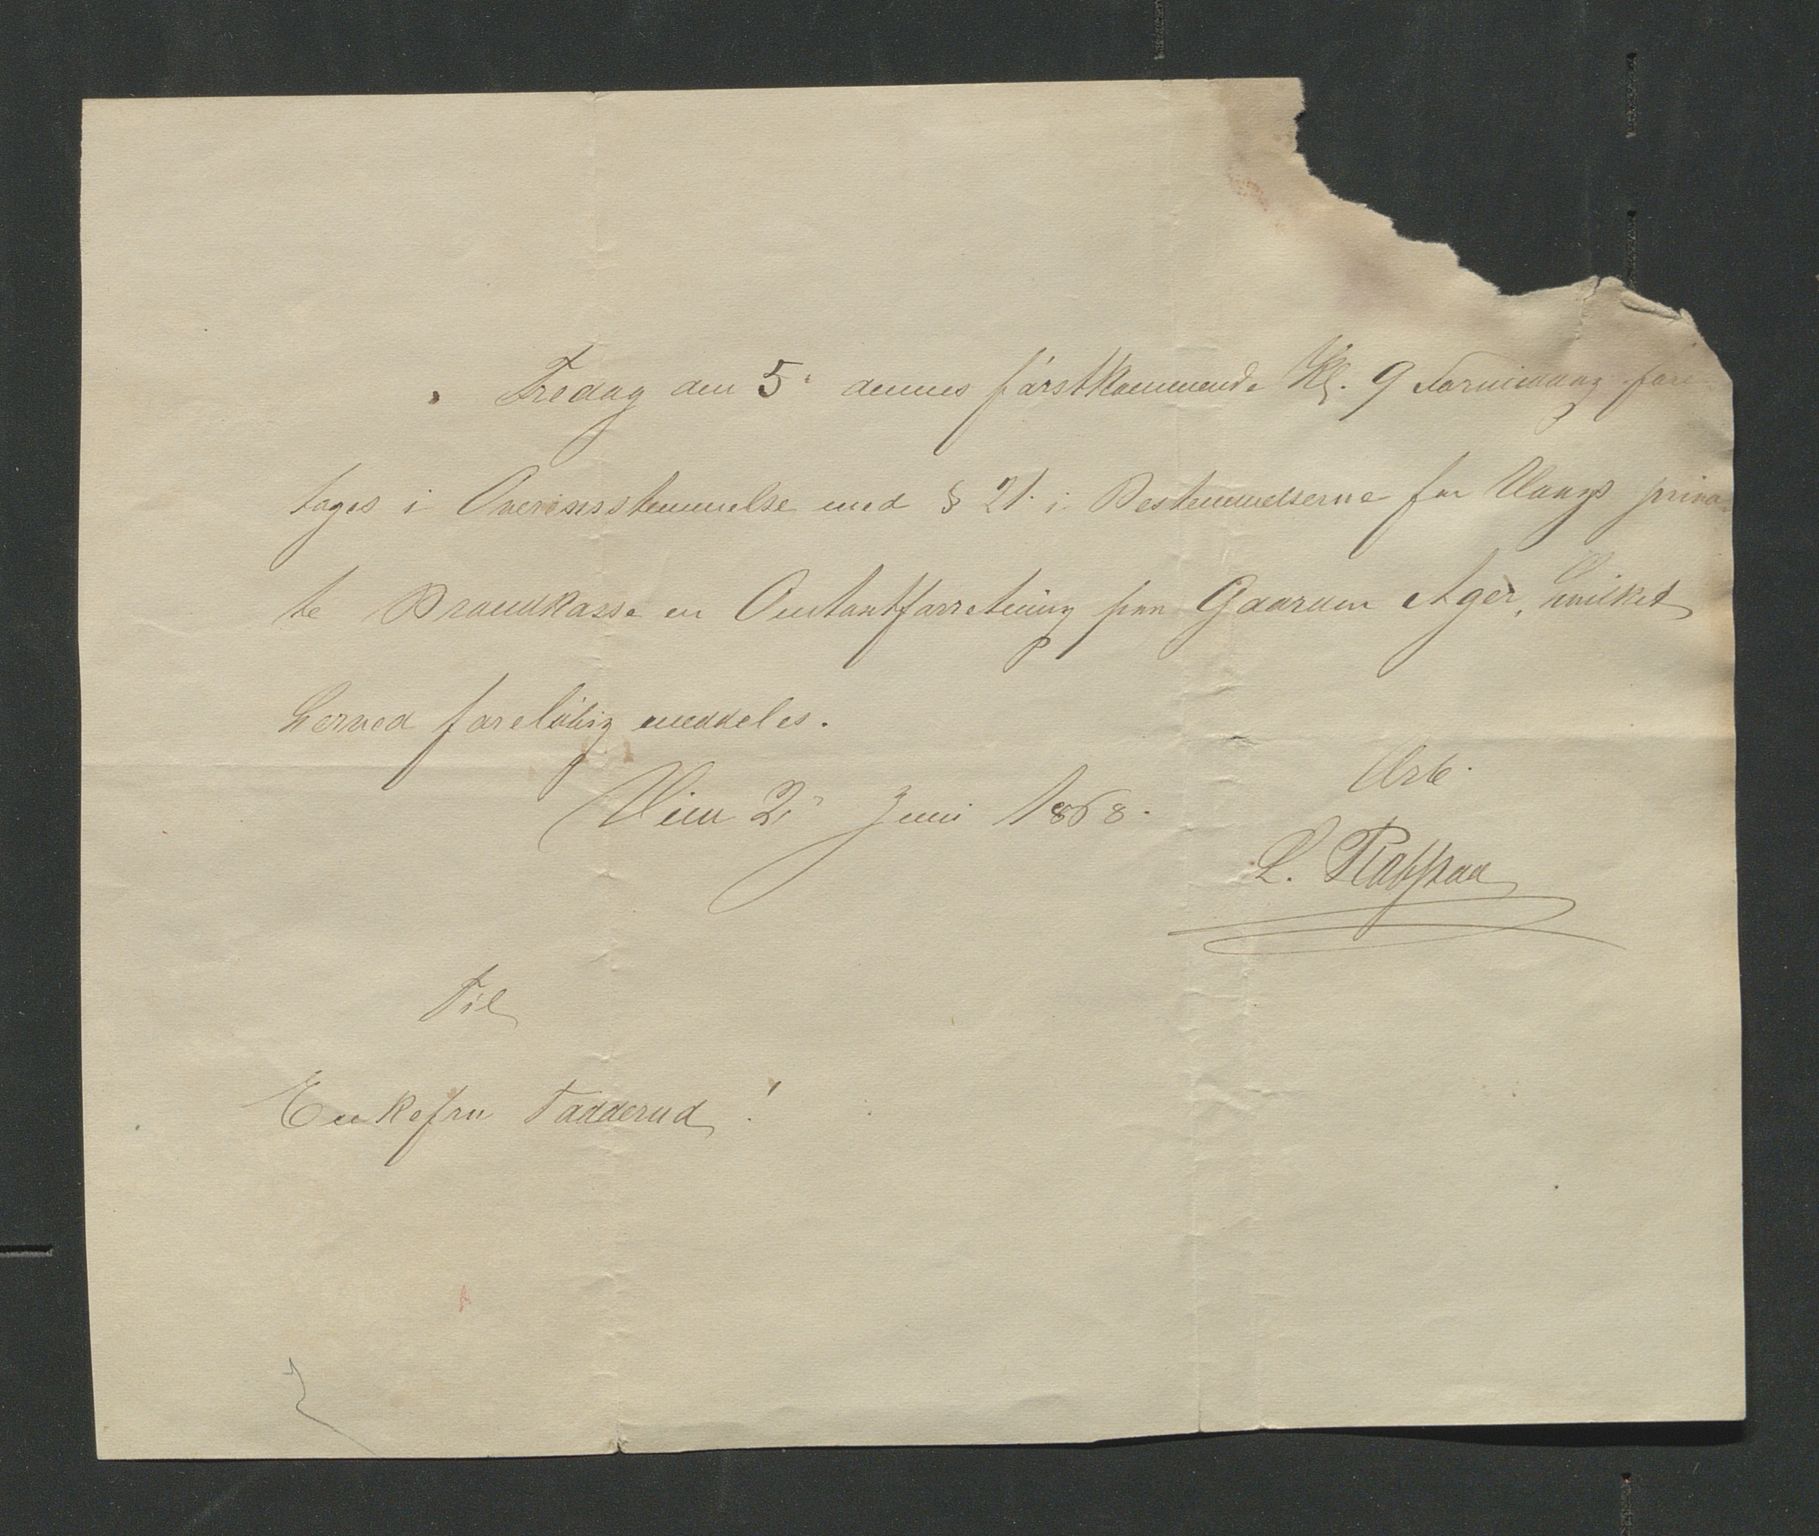 Fredag den 5. dennes förstkommende Kl. 9 Formiddag fore-
tages i Overensstemmelse med § 21. i Bestemmelserne for Vangs priva-
te Brandkasse en Omtaxtforretning paa Gaarden Ager, hvilket
herved foreløbig meddeles.
Vien 2. Juni 1868.
Arb.
L.
Til
Enkefru Fadderud!